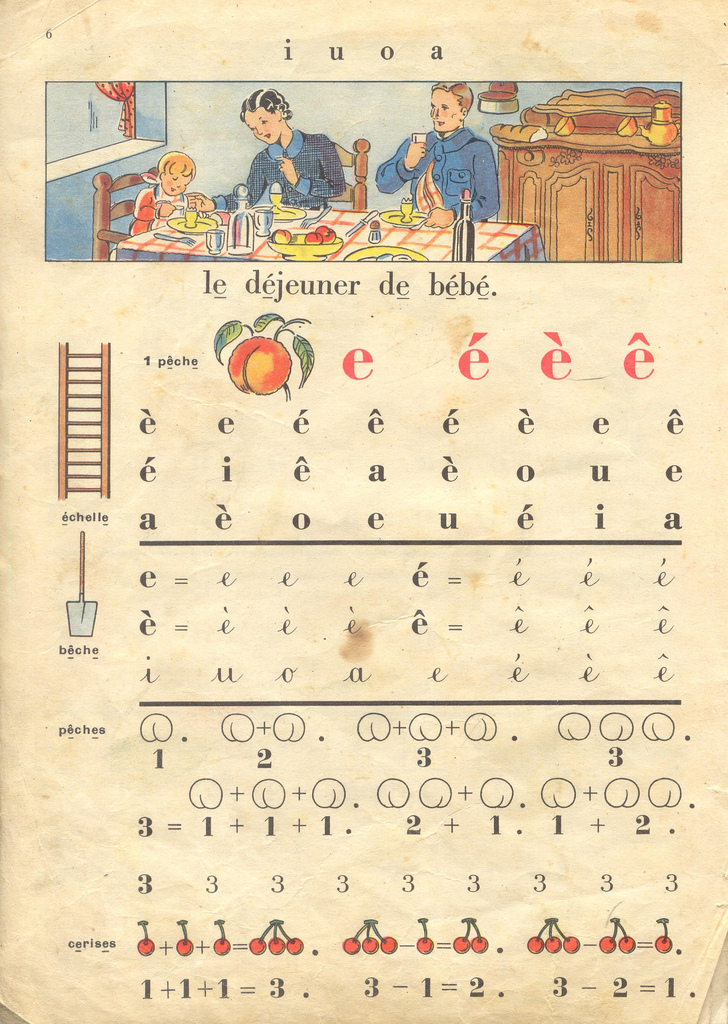 6
i u o a
le déjeuner de bébé.
1 pêche e é è ê
è e é ê é è e ê
é i ê a è o u e
échelle a è o e u é i a
e = e e e é = é é é
è = è è è ê = ê ê ê
bêche
i u o a e é è ê
pêches + . + + . .
1 2 3 3
+ + . + . + .
3 = 1 + 1 + 1 . 2 + 1 . 1 + 2 .
3 3 3 3 3 3 3 3 3
cerises + + = . - = . - = .
1+1+1 = 3 . 3 - 1 = 2 . 3 - 2 = 1 .